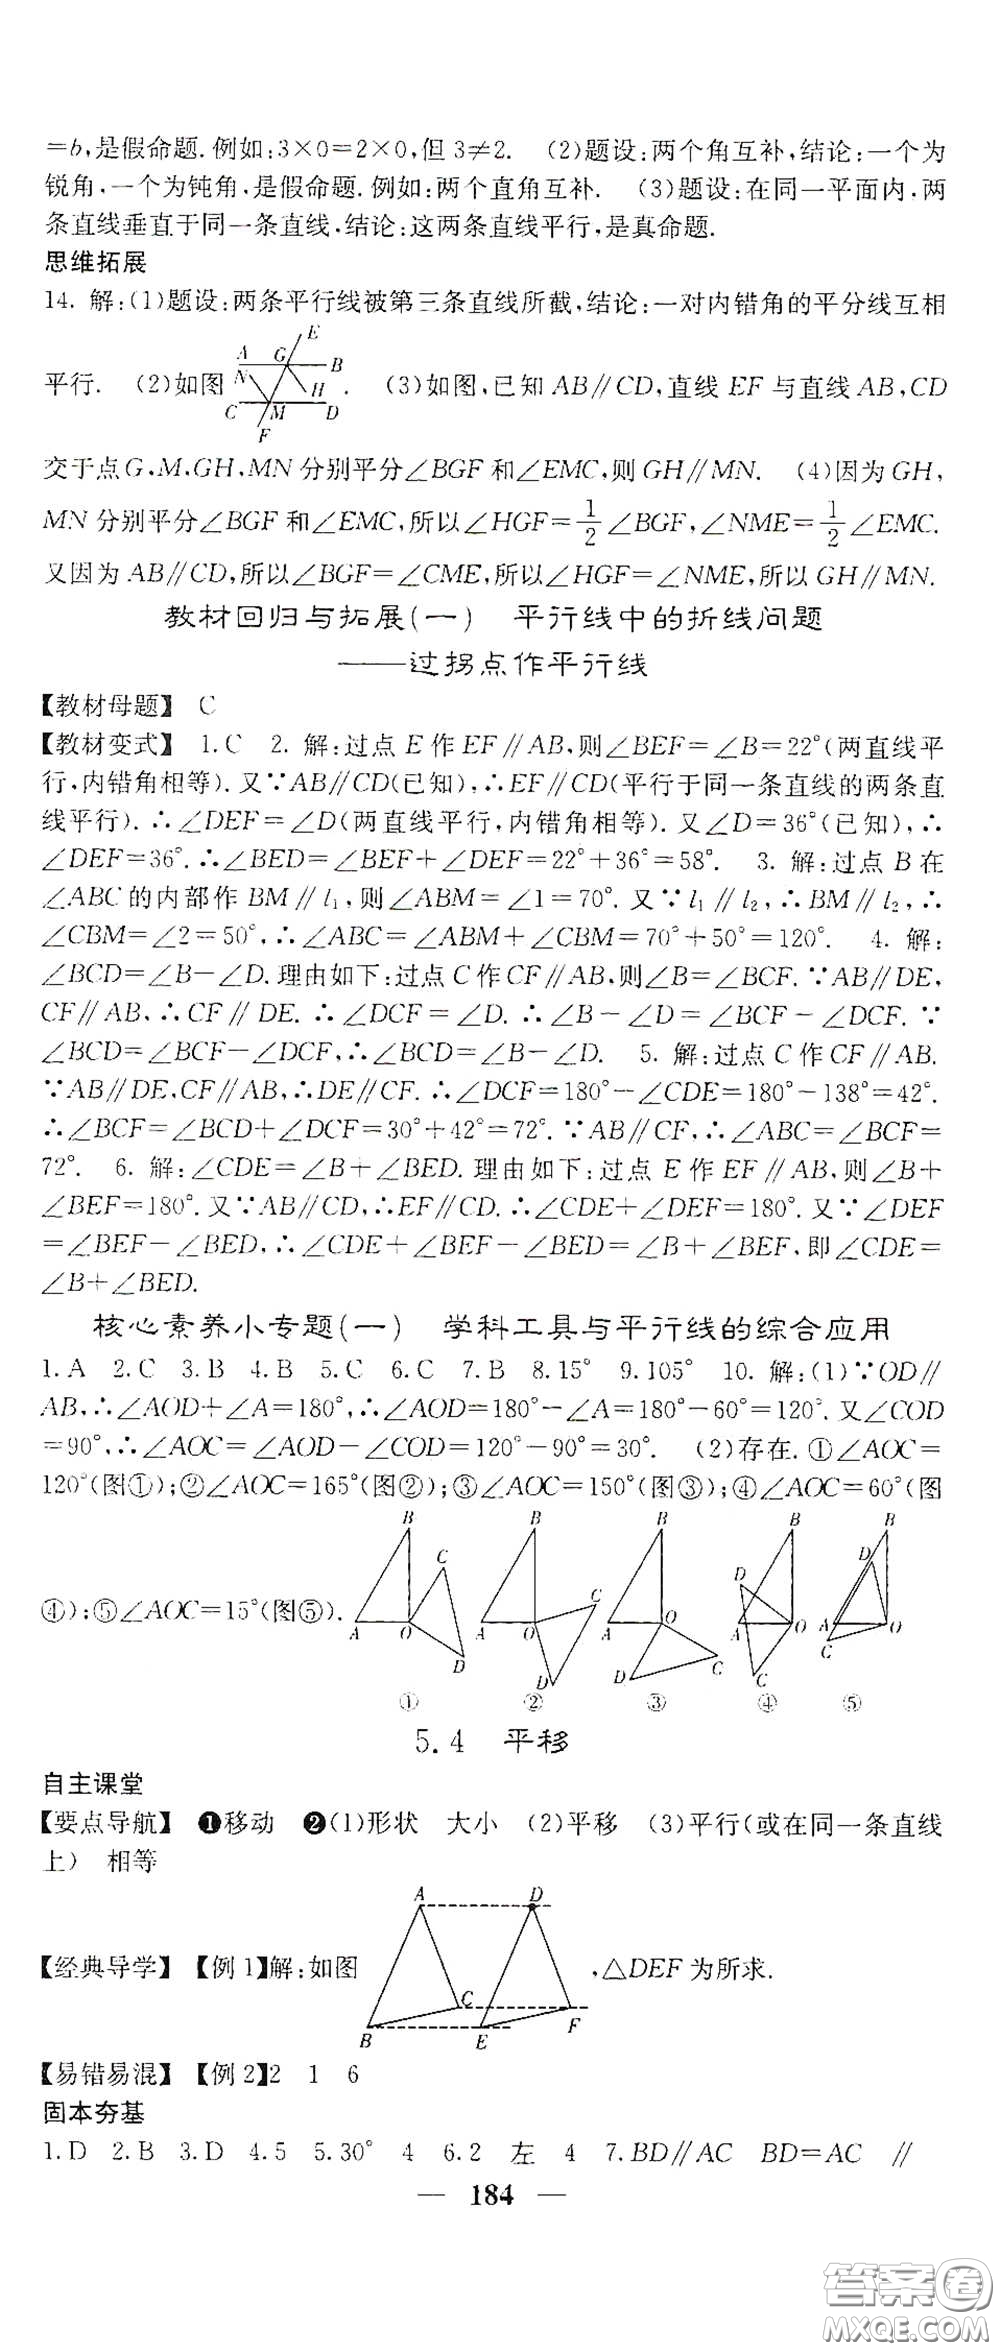 =b,是假命题.例如:3×0=2×0,但3≠2. (2)题设:两个角互补,结论:一个为
锐角,一个为钝角,是假命题.例如:两个直角互补. (3)题设:在同一平面内,两
条直线垂直于同一条直线,结论:这两条直线平行,是真命题.
思维拓展
14. 解:(1)题设:两条平行线被第三条直线所截,结论:一对内错角的平分线互相
平行. (2)如图 A G E B N H C M D F . (3)如图,已知AB∥CD,直线EF与直线AB,CD
交于点G,M,GH,MN分别平分∠BGF和∠EMC,则GH∥MN. (4)因为GH,
MN分别平分∠BGF和∠EMC,所以∠HGF=1/2∠BGF,∠NME=1/2∠EMC.
又因为AB∥CD,所以∠BGF=∠CME,所以∠HGF=∠NME,所以GH∥MN.
教材回归与拓展(一) 平行线中的折线问题
——过拐点作平行线
【教材母题】 C
【教材变式】 1.C 2. 解:过点E作EF∥AB,则∠BEF=∠B=22°(两直线平
行,内错角相等).又∵AB∥CD(已知),∴EF∥CD(平行于同一条直线的两条直
线平行).∴∠DEF=∠D(两直线平行,内错角相等).又∠D=36°(已知),∴
∠DEF=36°.∴∠BED=∠BEF+∠DEF=22°+36°=58°. 3. 解:过点B在
∠ABC的内部作BM∥l₁,则∠ABM=∠1=70°.又∵l₁∥l₂,∴BM∥l₂,∴
∠CBM=∠2=50°,∴∠ABC=∠ABM+∠CBM=70°+50°=120°. 4. 解:
∠BCD=∠B-∠D.理由如下:过点C作CF∥AB,则∠B=∠BCF.∵AB∥DE,
CF∥AB,∴CF∥DE.∴∠DCF=∠D.∴∠B-∠D=∠BCF-∠DCF.∵
∠BCD=∠BCF-∠DCF,∴∠BCD=∠B-∠D. 5. 解:过点C作CF∥AB.
∵AB∥DE,CF∥AB,∴DE∥CF.∴∠DCF=180°-∠CDE=180°-138°=42°.
∴∠BCF=∠BCD+∠DCF=30°+42°=72°.∵AB∥CF,∴∠ABC=∠BCF=
72°. 6. 解:∠CDE=∠B+∠BED.理由如下:过点E作EF∥AB,则∠B+
∠BEF=180°.又∵AB∥CD,∴EF∥CD.∴∠CDE+∠DEF=180°.又∵∠DEF
=∠BEF-∠BED,∴∠CDE+∠BEF-∠BED=∠B+∠BEF,即∠CDE=
∠B+∠BED.
核心素养小专题(一) 学科工具与平行线的综合应用
1.A 2.C 3.B 4.B 5.C 6.C 7.B 8.15° 9.105° 10. 解:(1)∵OD∥
AB,∴∠AOD+∠A=180°,∴∠AOD=180°-∠A=180°-60°=120°.又∠COD
=90°,∴∠AOC=∠AOD-∠COD=120°-90°=30°. (2)存在.①∠AOC=
120°(图①);②∠AOC=165°(图②);③∠AOC=150°(图③);④∠AOC=60°(图
④);⑤∠AOC=15°(图⑤).
B C A O D B C A O D B A O D C B D A O C B D A O C
① ② ③ ④ ⑤
5.4 平移
自主课堂
【要点导航】 ❶移动 ❷(1)形状 大小 (2)平移 (3)平行(或在同一条直线
上) 相等
A D
【经典导学】 【例1】解:如图 ,△DEF为所求.
C F
B E
【易错易混】 【例2】2 1 6
固本夯基
1.D 2.B 3.D 4.5 5.30° 4 6.2 左 4 7.BD∥AC BD=AC ∥
— 184 —
答案圈
MXQE.COM